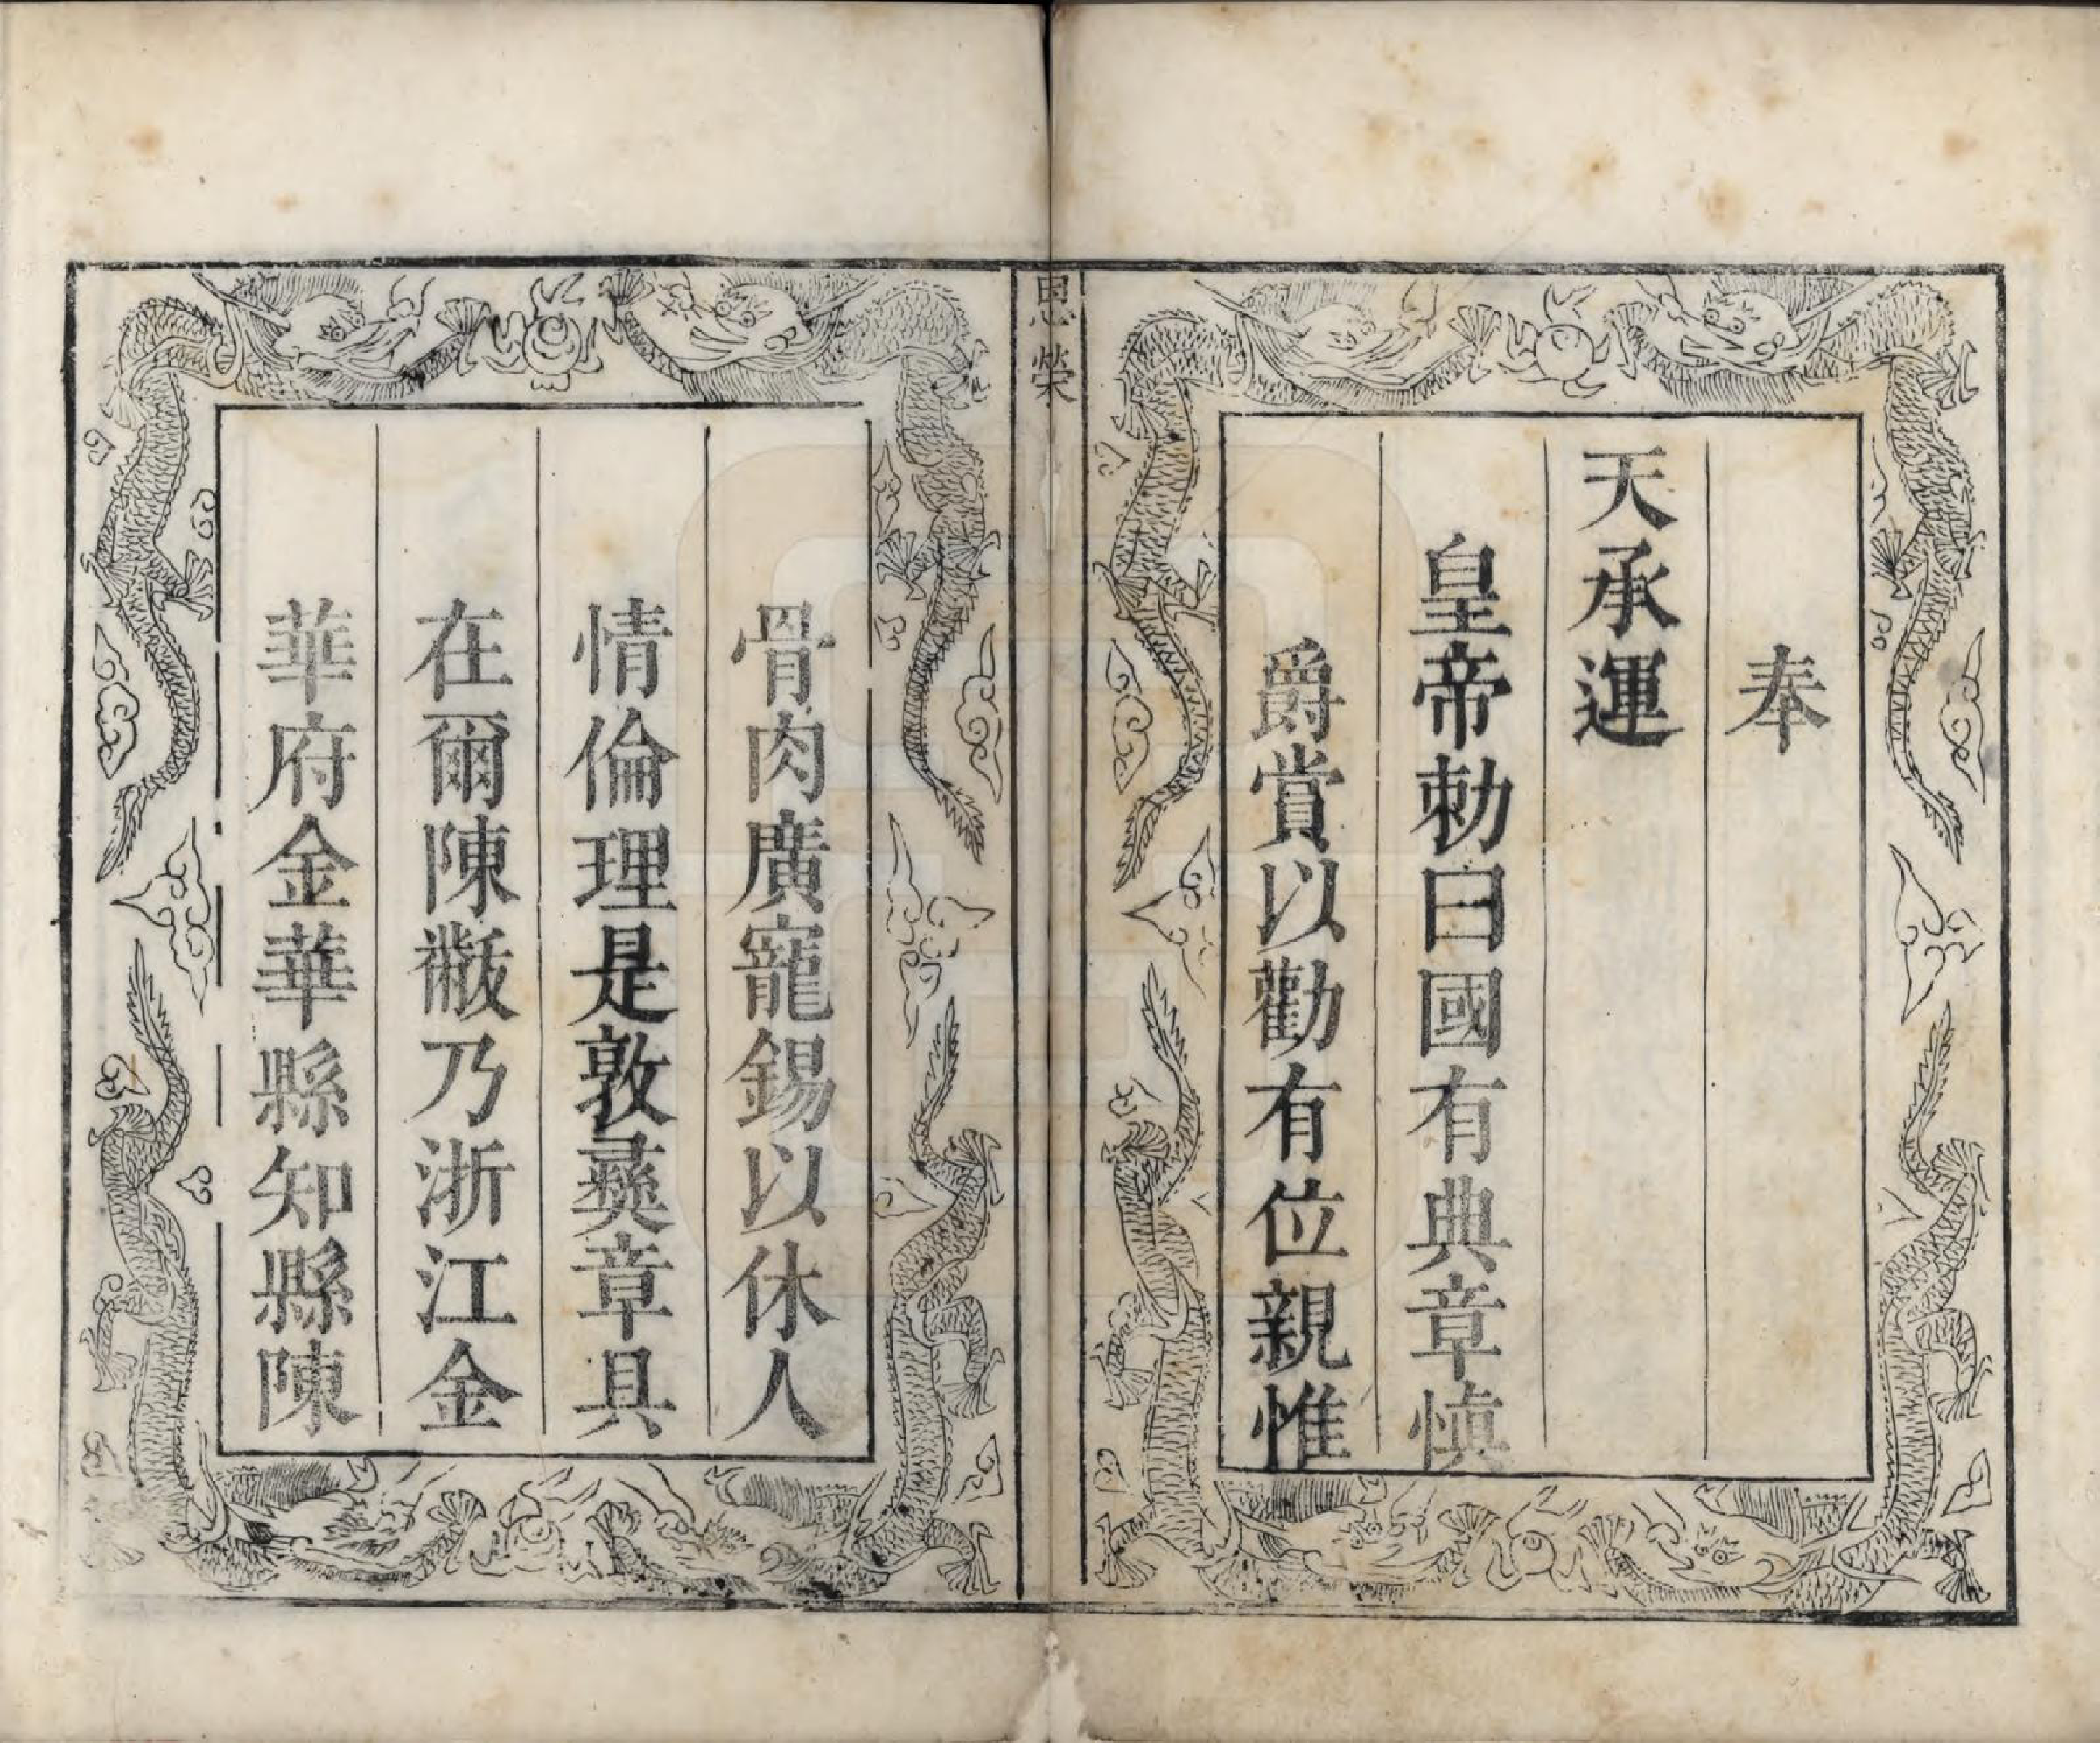 奉
天承運
皇帝勅曰國有典章愼
爵賞以勸有位親惟
恩榮
骨肉廣寵錫以休人
情倫理是敦彛章具
在爾陳黻乃浙江金
華府金華縣知縣陳